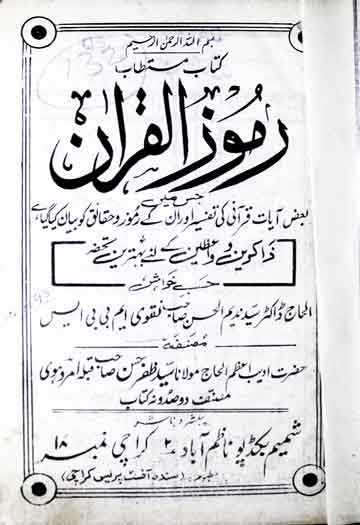 بسم اللہ الرحمن الرحیم
کتاب مستطاب
رموز القرآن
جس میں
بعض آیات قرآنی کی تفسیر اور ان کے رموز و حقائق کو بیان کیا گیا ہے
ذاکرین و واعظین کے لئے بہترین تحفہ
حسب خواہش
الحاج ڈاکٹر سید ندیم الحسن صاحب نقوی ایم بی بی ایس
مصنفہ
حضرت ادیب اعظم الحاج مولانا سید ظفر حسن صاحب قبلہ امروہوی
مصنف دو صد و نہ کتاب
ناشر
شمیم بکڈپو ناظم آباد ۲ کراچی نمبر ۱۸
(سندھ آفسٹ پریس کراچی)